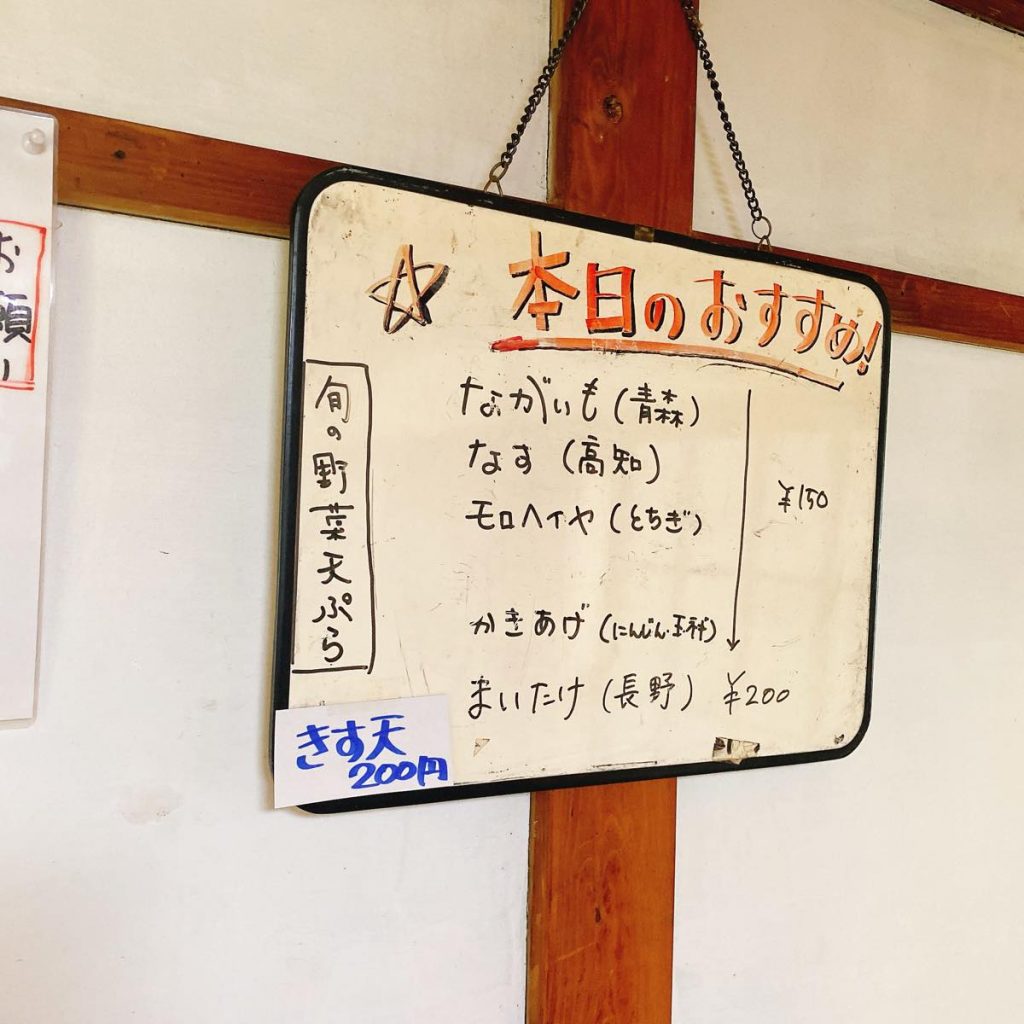 お願い
☆ 本日のおすすめ!
旬の野菜天ぷら
ながいも(青森)
なす(高知)
モロヘイヤ(とちぎ)
¥150
かきあげ(にんじん・玉ネギ)
まいたけ(長野) ¥200
きす天
200円